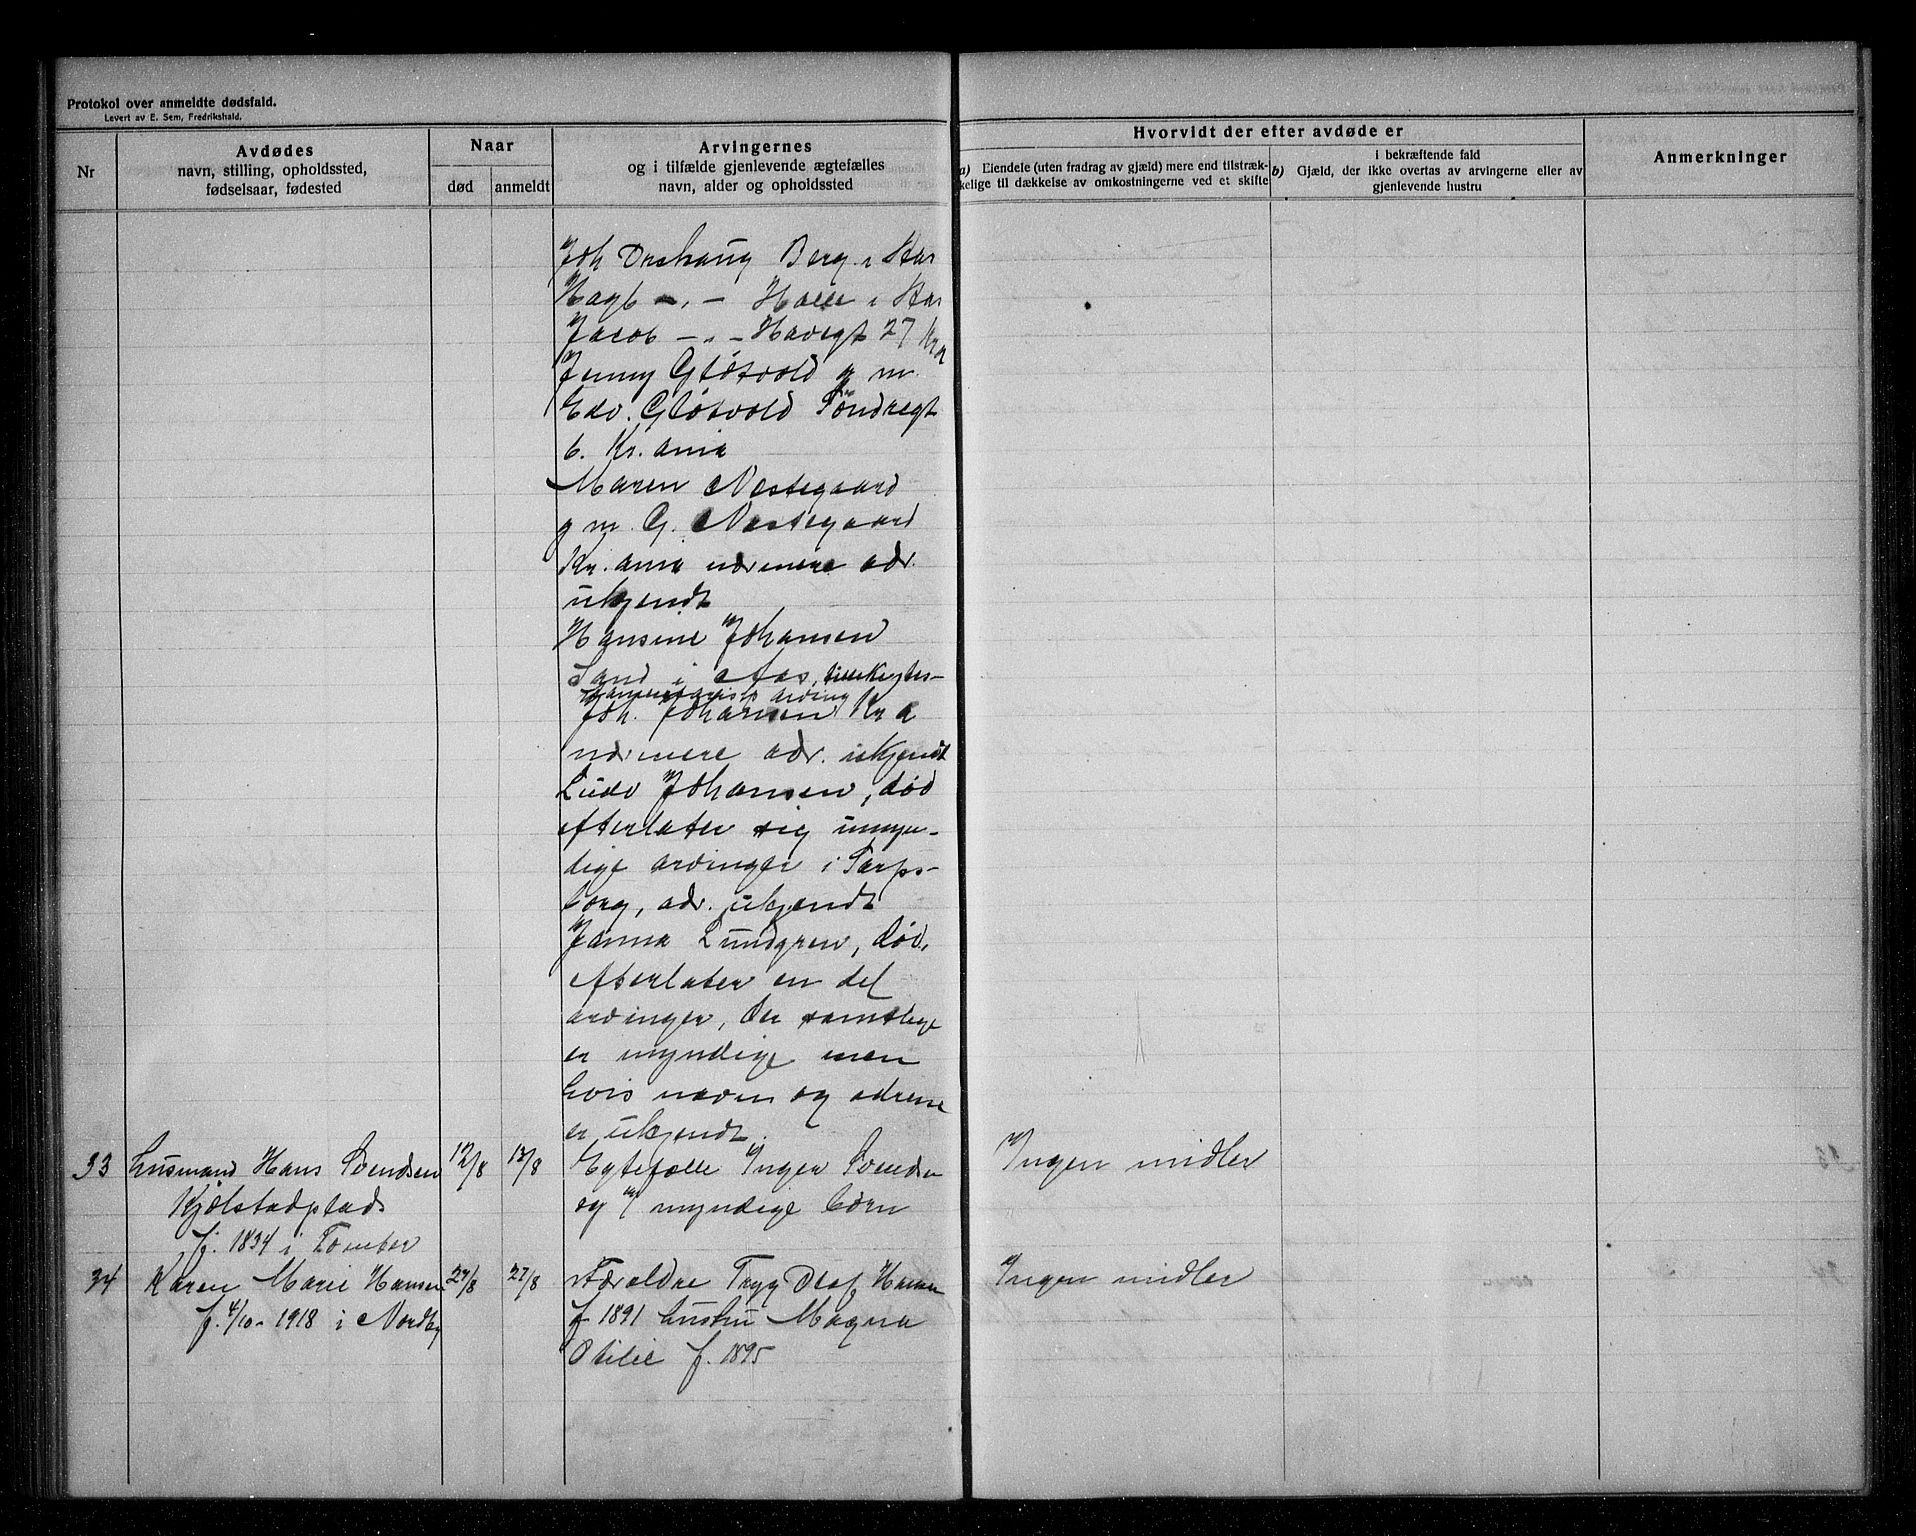 Protokol over anmeldte dødsfald.
Levert av E. Sem, Fredrikshald.
Nr
Avdødes
navn, stilling, opholdssted,
fødselsaar, fødested
Naar
død
anmeldt
Arvingernes
og i tilfælde gjenlevende ægtefælles
navn, alder og opholdssted
Hvorvidt der efter avdøde er
a) Eiendele (uten fradrag av gjæld) mere end tilstræk-
kelige til dækkelse av omkostningerne ved et skifte
i bekræftende fald
b) Gjæld, der ikke overtas av arvingerne eller av
gjenlevende hustru
Anmerkninger
Joh Orskaug Berg i
Hagb -"- i
Jacob -"- 27 Kra
Jenny Gløtvold g m.
Edv. Gløtvold Söndregt
6. Kr.ania
Maren Nestegaard
g m. G. Nestegaard
Kr. ania nærmere adr.
ukjendt
Hansine Johansen
Sand i Aas,
arving
Joh. Johansen Kra
nærmere adr. ukjendt
Ludv Johansen, død
efterlater sig umyn-
dige arvinger i Sarps-
borg, adr. ukjendt
Janna Lundgren, død,
efterlater en del
arvinger, der samtlige
er myndige men
hvis navn og adresse
er ukjendt.
33 Husmand Hans Svendsen 12/8 13/8 Egtefælle Inger Svendsn Ingen midler
Kjølstadplads og 7 myndige börn
f. 1834 i Tomter
34 Karen Marie Hansen 27/8 27/8 Foreldre Tryg Olaf Hansen Ingen midler
f. 4/10-1918 i Nordby f 1891 hustru Magna
Otilie f. 1895